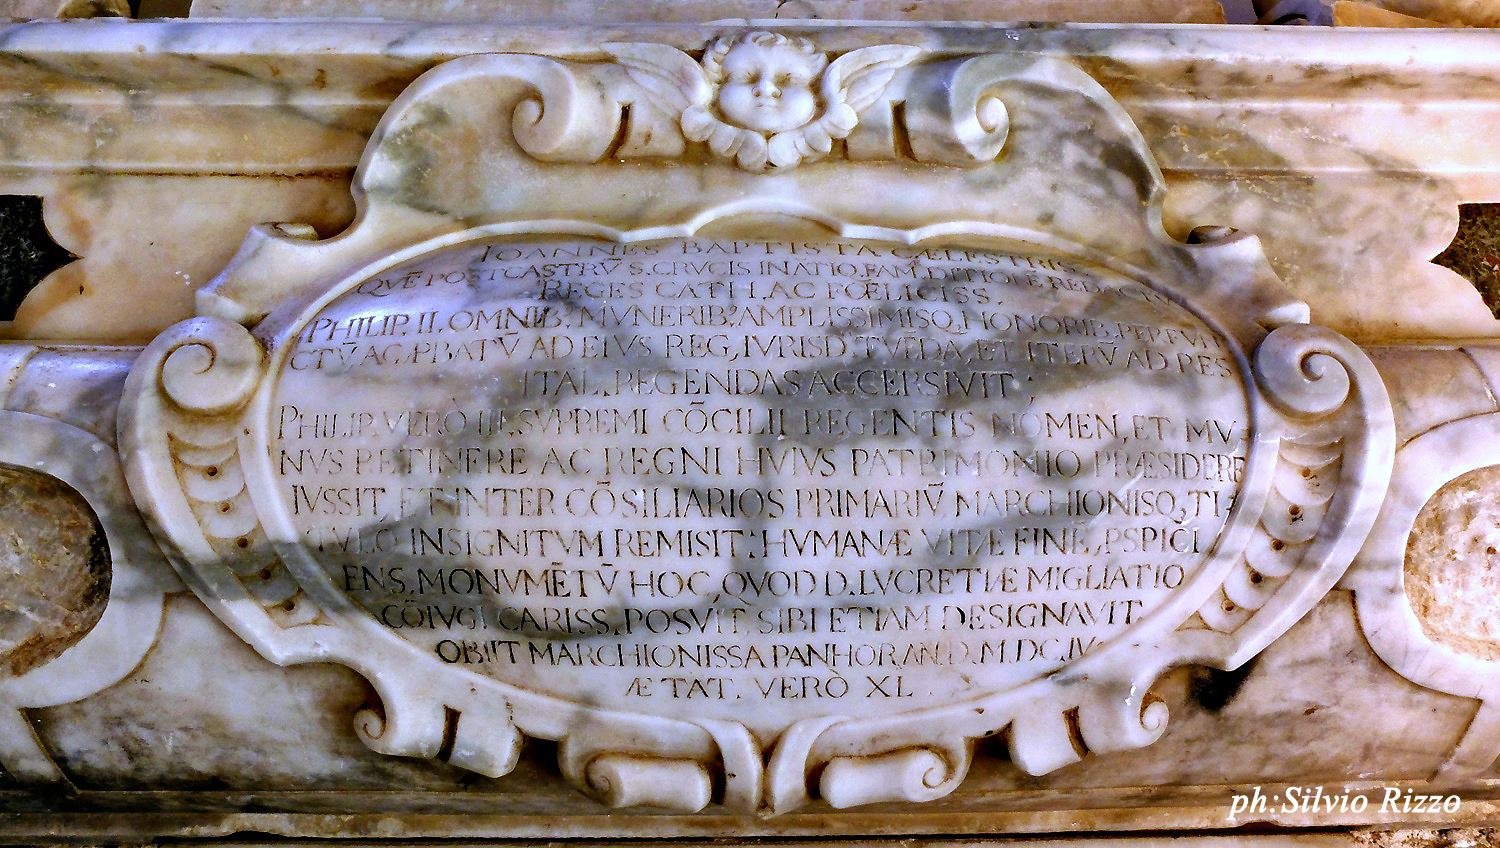 IOANNES BAPTISTA CÆLESTRIS
QVĒ POST CASTRV̄ S. CRVCIS IN ATIO. FAM. DITIONĒ REDACTV̄
REGES CATH. AC FŒLICISS.
PHILIP. II. OMNIB. MVNERIB. AMPLISSIMISQ, HONORIB. PERFVN
CTV̄ AC ꝐBATV̄ AD EIVS REG, IVRISD. TVĒDA, ET ITERV̄ AD RES
ITAL. REGENDAS ACCERSIVIT,
PHILIP. VERÒ III. SVPREMI CŌCILII REGENTIS NOMEN, ET MV-
NVS RETINERE AC REGNI HVIVS PATRIMONIO PRÆSIDERE
IVSSIT, ET INTER CŌSILIARIOS PRIMARIV̄ MARCHIONISQ, TI-
TVLO INSIGNITVM REMISIT: HVMANÆ VITÆ FINĒ, PSPICI
ENS, MONVMĒTV̄ HOC, QVOD D. LVCRETIÆ MIGLIATIO
CŌIVGI CARISS. POSVIT, SIBI ETIAM DESIGNAVIT.
OBIIT MARCHIONISSA PANHOR. AN. D. M.DC.IV
ÆTAT. VERÒ XL
ph:Silvio Rizzo